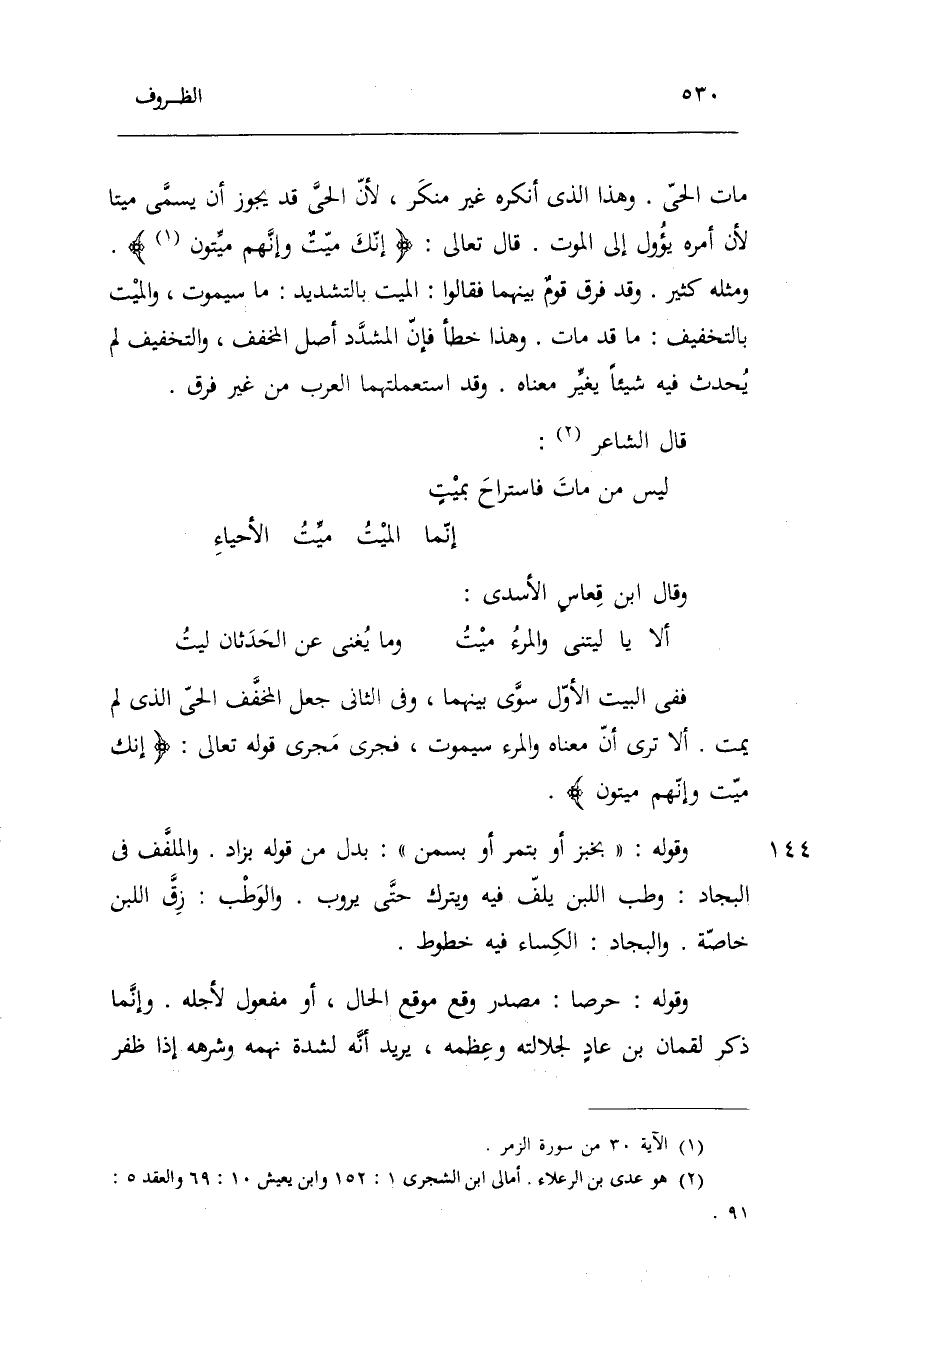 ٥٣٠ الظـروف
مات الحىّ . وهذا الذى أنكره غير منكَر ، لأنّ الحىَّ قد يجوز أن يسمَّى ميتا
لأن أمره يؤُول إلى الموت . قال تعالى : ﴿ إنّكَ ميّتٌ وإنَّهم ميِّتون (١) ﴾ .
ومثله كثير . وقد فرق قومٌ بينهما فقالوا : الميت بالتشديد : ما سيموت ، والميْت
بالتخفيف : ما قد مات . وهذا خطأ فإنّ المشدَّد أصل المخفف ، والتخفيف لم
يُحدث فيه شيئاً يغيِّر معناه . وقد استعملتهما العرب من غير فرق .
قال الشاعر (٢) :
ليس من ماتَ فاستراحَ بميْتٍ
إنّما الميْتُ ميِّتُ الأحياءِ
وقال ابن قِعاسٍ الأسدى :
ألا يا ليتنى والمرءُ ميْتُ وما يُغنى عن الحَدَثان ليتُ
ففى البيت الأوّل سوَّى بينهما ، وفى الثانى جعل المخفَّف الحىّ الذى لم
يمت . ألا ترى أنّ معناه والمرء سيموت ، فجرى مَجرى قوله تعالى : ﴿ إنك
ميّت وإنّهم ميتون ﴾ .
وقوله : « بخبز أو بتمر أو بسمن » : بدل من قوله بزاد . والملفَّف فى ١٤٤
البجاد : وطب اللبن يلفّ فيه ويترك حتَّى يروب . والوَطْب : زِقَّ اللبن
خاصّة . والبجاد : الكِساء فيه خطوط .
وقوله : حرصا : مصدر وقع موقع الحال ، أو مفعول لأجله . وإنَّما
ذكر لقمان بن عادٍ لجلالته وعِظمه ، يريد أنَّه لشدة نهمه وشرهه إذا ظفر
(١) الآية ٣٠ من سورة الزمر .
(٢) هو عدى بن الرعلاء . أمالى ابن الشجرى ١ : ١٥٢ وابن يعيش ١٠ : ٦٩ والعقد ٥ :
٩١ .